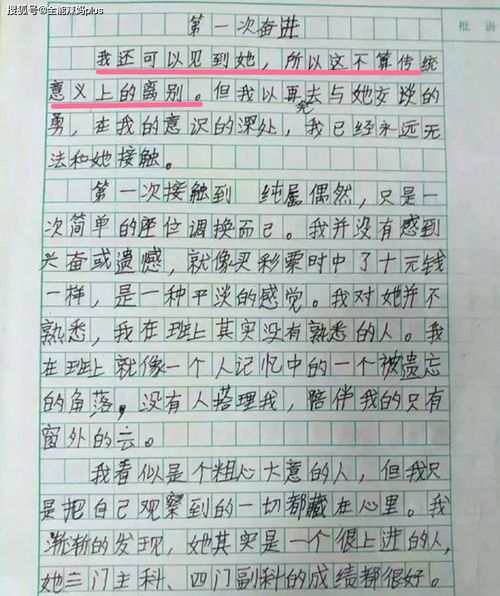 搜狐号@全能辣妈plus
批语
第一次奋进
我还可以见到她，所以这不算传统
意义上的离别。但我以再去与她交谈的
勇，在我的意识的深处，我已经永远无
法和她接触。
第一次接触到 纯属偶然，只是一
次简单的座位调换而己。我并没有感到
兴奋或遗憾，就像买彩票时中了十元钱
一样，是一种平淡的感觉。我对她并不
熟悉，我在班上其实没有熟悉的人。我
在班上就像一个人记忆中的一个被遗忘
的角落，没有人搭理我，陪伴我的只有
窗外的云。
我看似是个粗心大意的人，但我只
是把自己观察到的一切都藏在心里。我
渐渐的发现，她其实是一个很上进的人，
她三门主科、四门副科的成绩都很好。